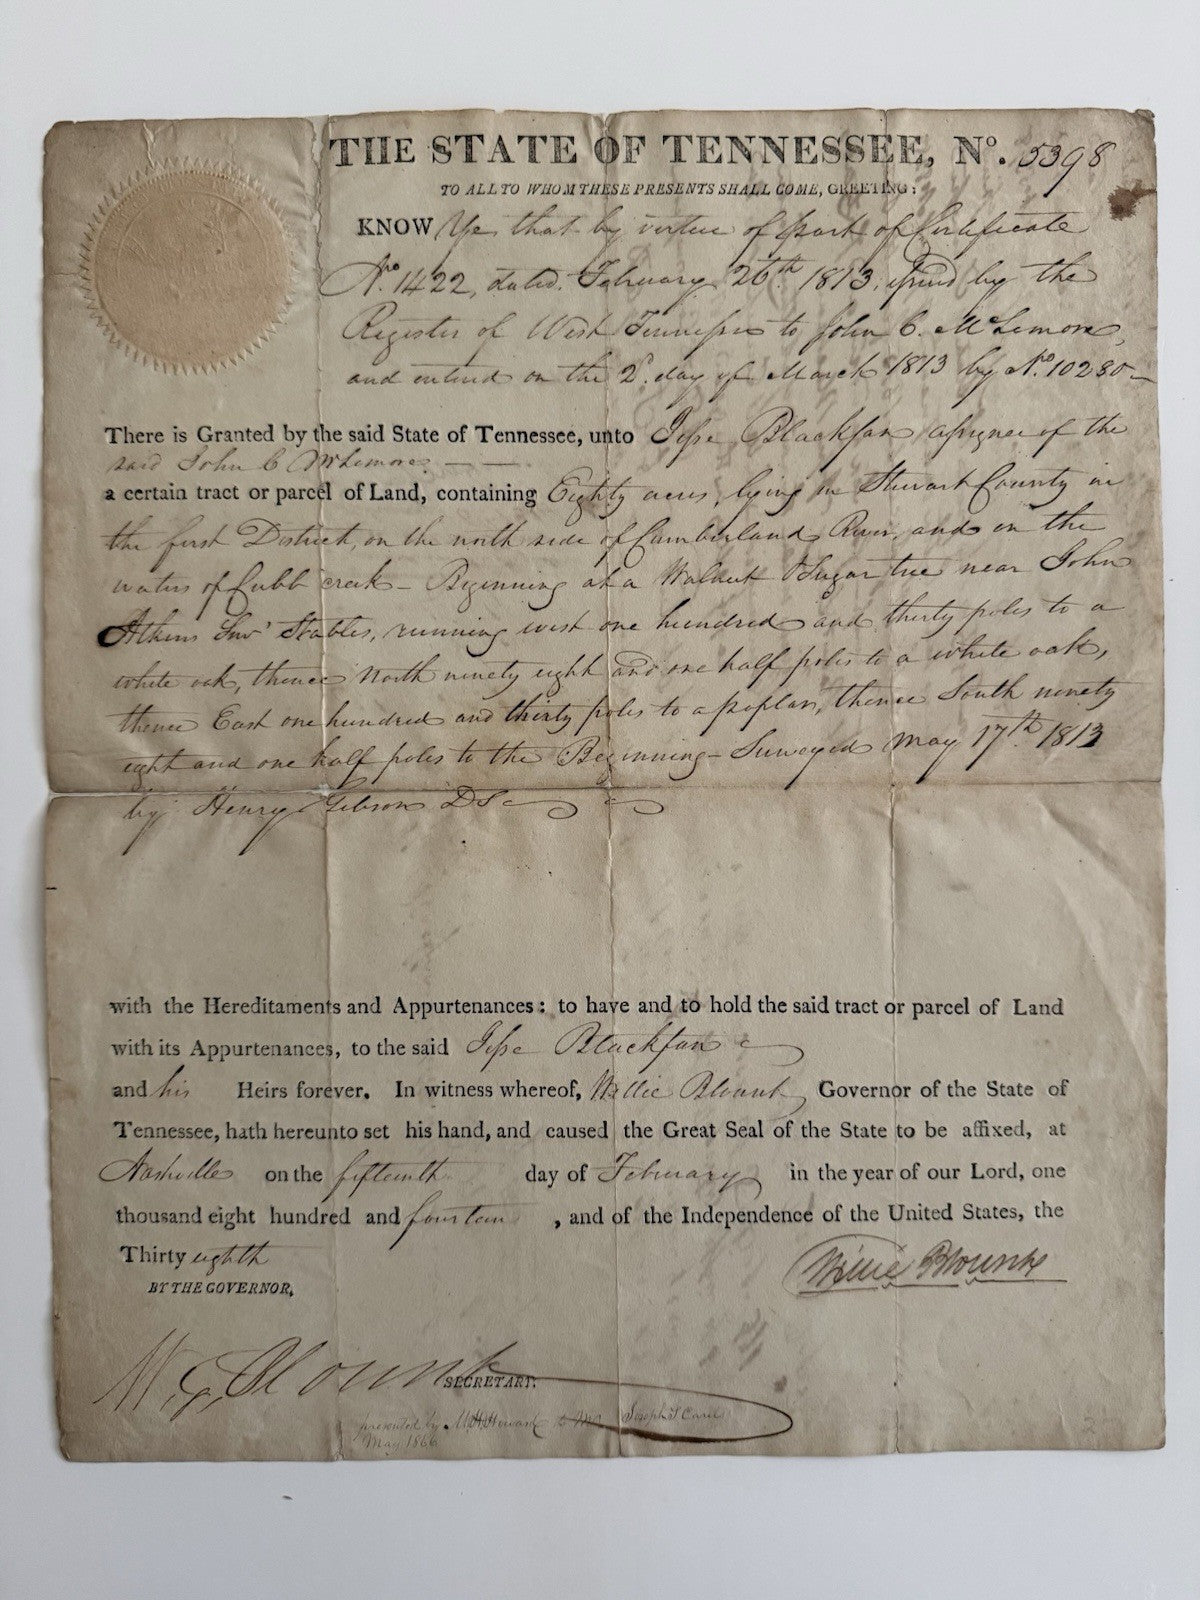 THE STATE OF TENNESSEE, No. 5398
TO ALL TO WHOM THESE PRESENTS SHALL COME, GREETING:
KNOW Ye that by virtue of part of Certificate
No. 1422, dated February 26th 1813, issued by the
Register of West Tennessee to John C. McLemore,
and entered on the 2d. day of March 1813 by No. 10280 —
There is Granted by the said State of Tennessee, unto Jesse Blackfan assignee of the
said John C McLemore — —
a certain tract or parcel of Land, containing Eighty acres, lying in Stewart County in
the first District, on the north side of Cumberland River, and on the
waters of Cubb creek – Beginning at a Walnut & Sugar tree near John
Atkins Stables, running west one hundred and thirty poles to a
white oak, thence North ninety eight and one half poles to a white oak,
thence East one hundred and thirty poles to a poplar, thence South ninety
eight and one half poles to the Beginning – Surveyed May 17th 1813
by Henry Gibson D S
with the Hereditaments and Appurtenances: to have and to hold the said tract or parcel of Land
with its Appurtenances, to the said Jesse Blackfan
and his Heirs forever. In witness whereof, Willie Blount Governor of the State of
Tennessee, hath hereunto set his hand, and caused the Great Seal of the State to be affixed, at
Nashville on the fifteenth day of February in the year of our Lord, one
thousand eight hundred and fourteen, and of the Independence of the United States, the
Thirty eighth
Willie Blount
BY THE GOVERNOR,
W. G. Blount SECRETARY.
presented by M. H. Howard to Mr Joseph S
May 1866